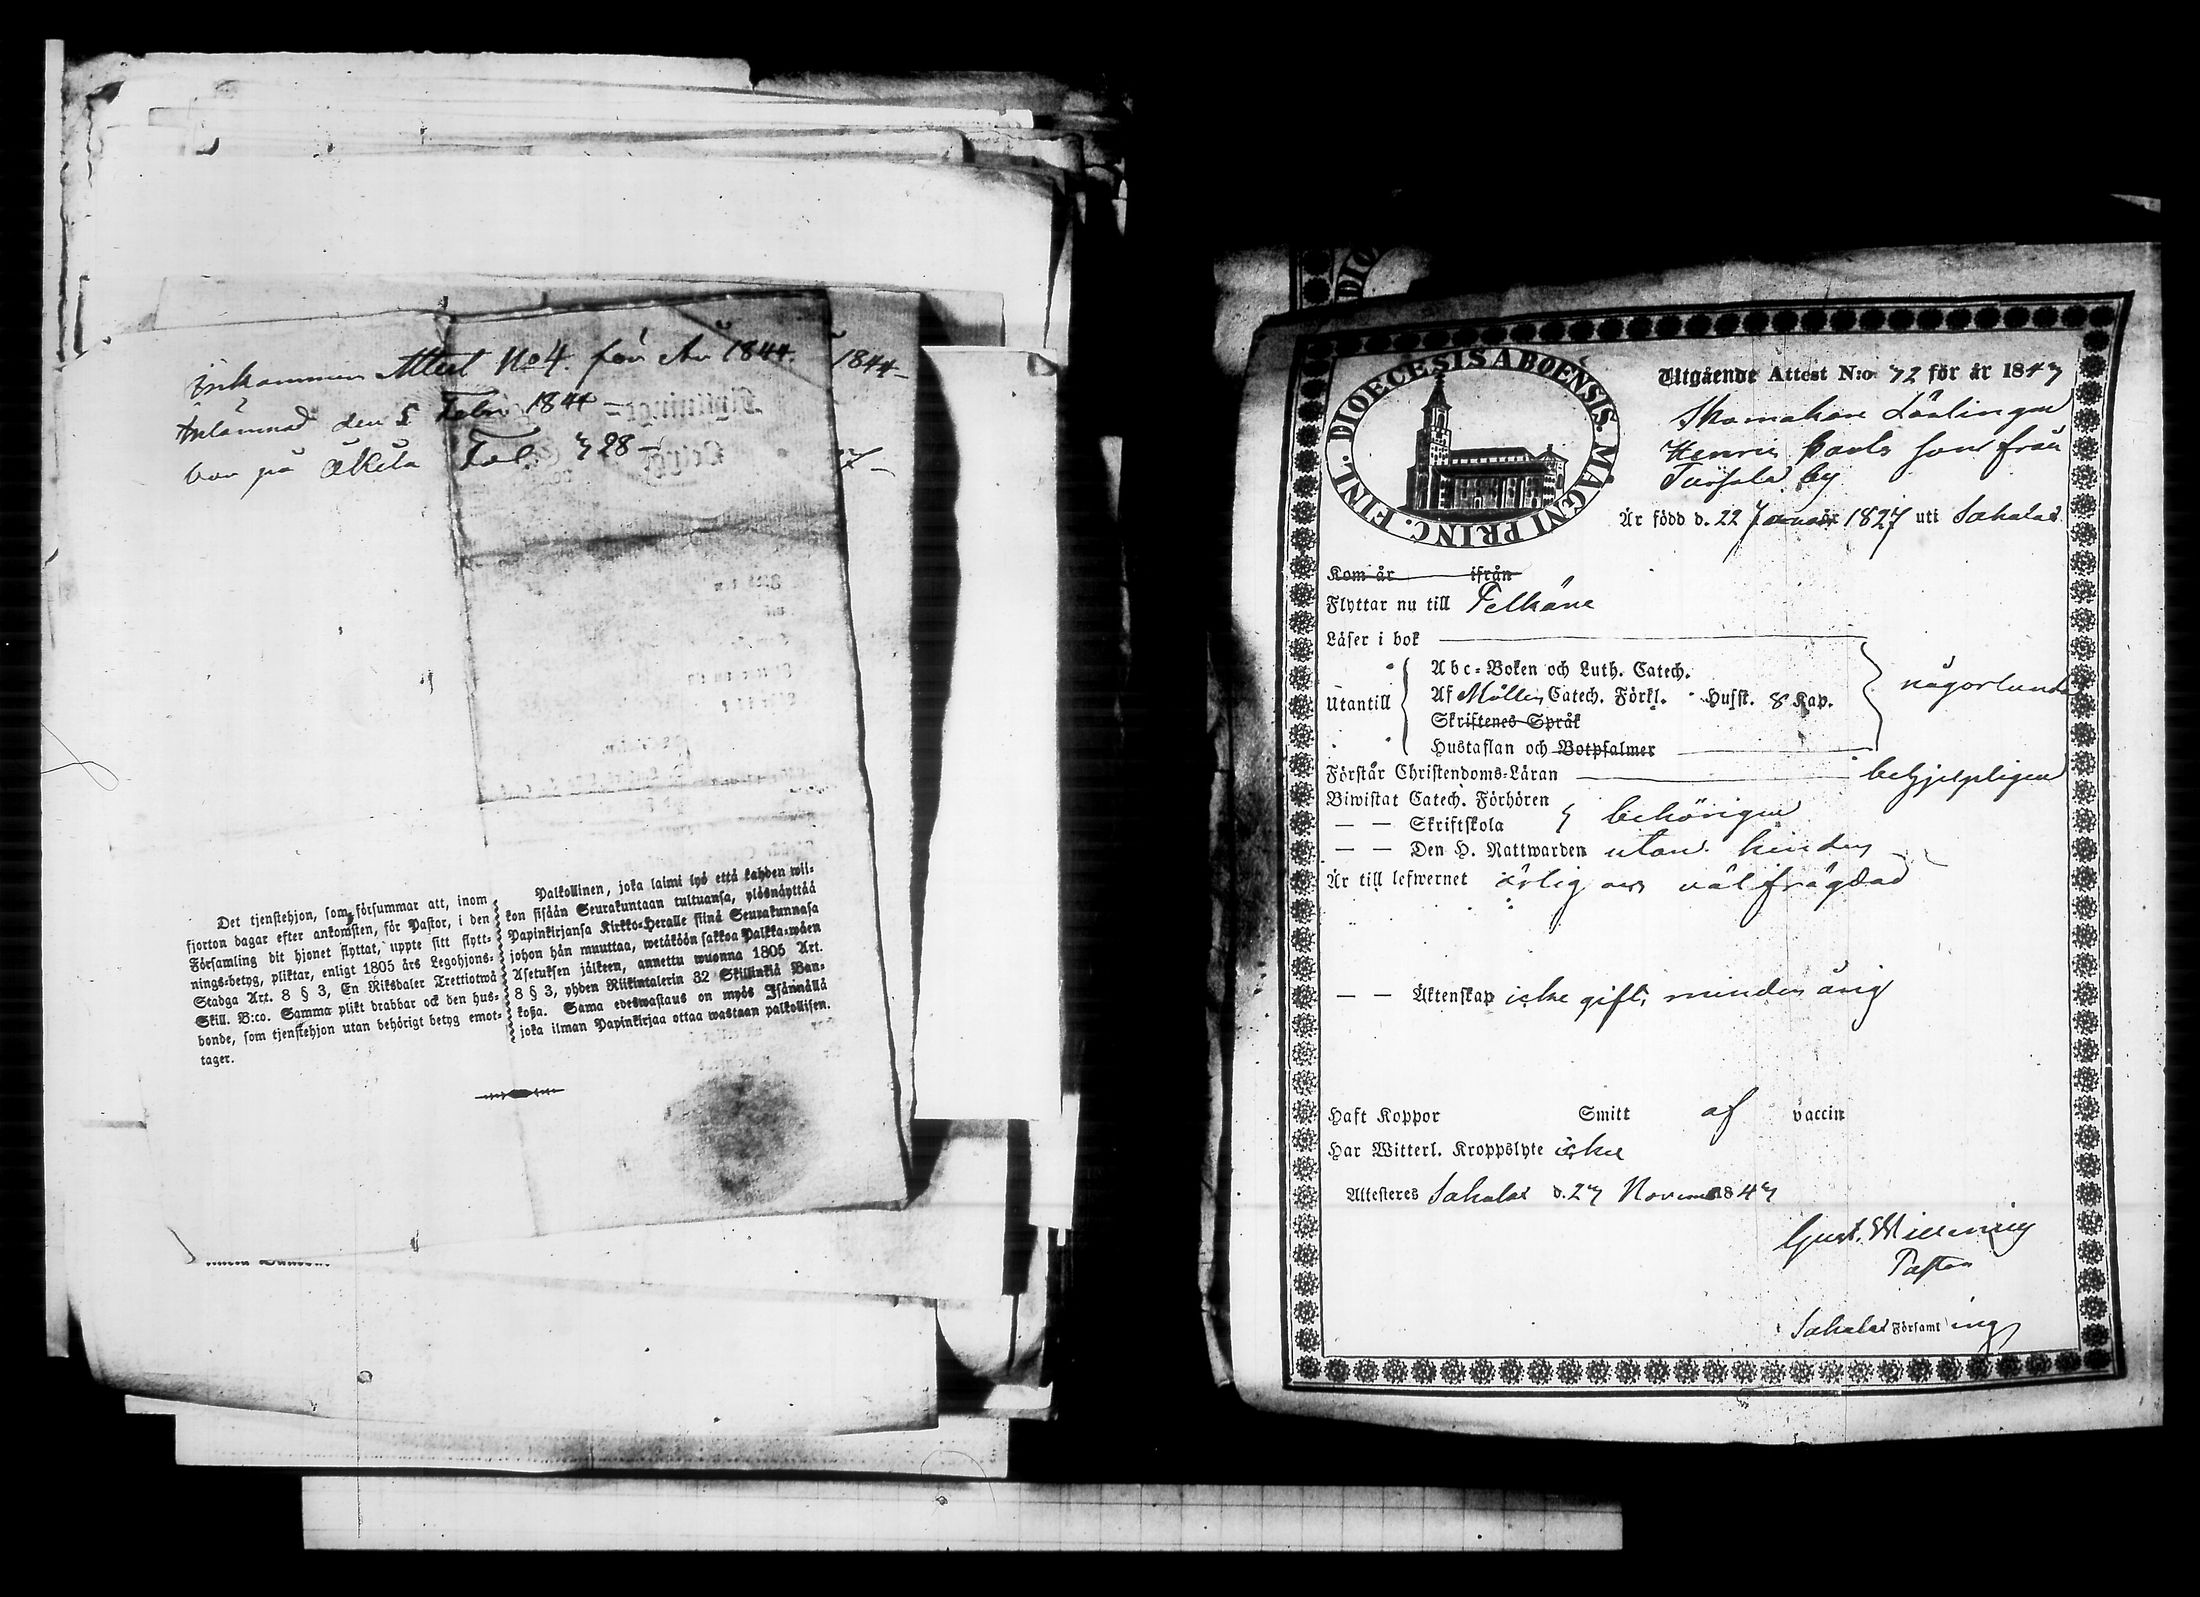 Inkommen Attest No 4. för År 1844.
Inlämnad den 5 Febr 1844 —
bor på Äkela Fol. 728 —
1844 —
7 —
Det tjenstehjon, som försummar att, inom
fjorton dagar efter ankomsten, för Pastor, i den
Församling dit hjonet flyttat, uppte sitt flytt-
nings-betyg, pliktar, enligt 1805 års Legohjons-
Stadga Art. 8 § 3, En Riksdaler Trettiotwå
Skill. B:co. Samma plikt drabbar ock den hus-
bonde, som tjenstehjon utan behörigt betyg emot-
tager.
Palkollinen, joka laimi lyö että kahden wii-
kon sisään Seurakuntaan tultuansa, ylösnäyttää
Papinkirjansa Kirkko-Heralle siinä Seurakunnasa
johon hän muuttaa, wetäköön sakkoa Palkka-wäen
Asetuksen jälkeen, annettu wuonna 1805 Art.
8 § 3, yhden Riikintalerin 32 Skillinkiä Ban-
kosa. Sama edeswastaus on myös Isännällä
joka ilman Papinkirjaa ottaa wastaan palkollisen.
DIOECESIS ABOENSIS. MAGNI PRINC. FINL.
Utgående Attest N:o 72 för år 1847
Skomakare Lärlingen
Henric Pauls son från
by
Är född d. 22 Januar 1827 uti Sahalax
Kom år ifrån
Flyttar nu till Pelkäne
Läser i bok
Abc-Boken och Luth. Catech.
Utantill Af Möllers Catech. Förkl. Husst. 8 Kap. någorlunda
Skriftenes Språk
Hustaflan och Botpsalmer
Förstår Christendoms-Läran behjelpligen
Biwistat Catech. Förhören
— — Skriftskola behörigen
— — Den H. Nattwarden utan hinder
Är till lefwernet ärlig och välfrägdad
— — Äktenskap icke gift, minderårig
Haft Koppor Smitt af vaccin
Har Witterl. Kroppslyte icke
Attesteres Sahalax d. 27 Novemb 1847
Gust.
Pastor
Sahalax Församl ing